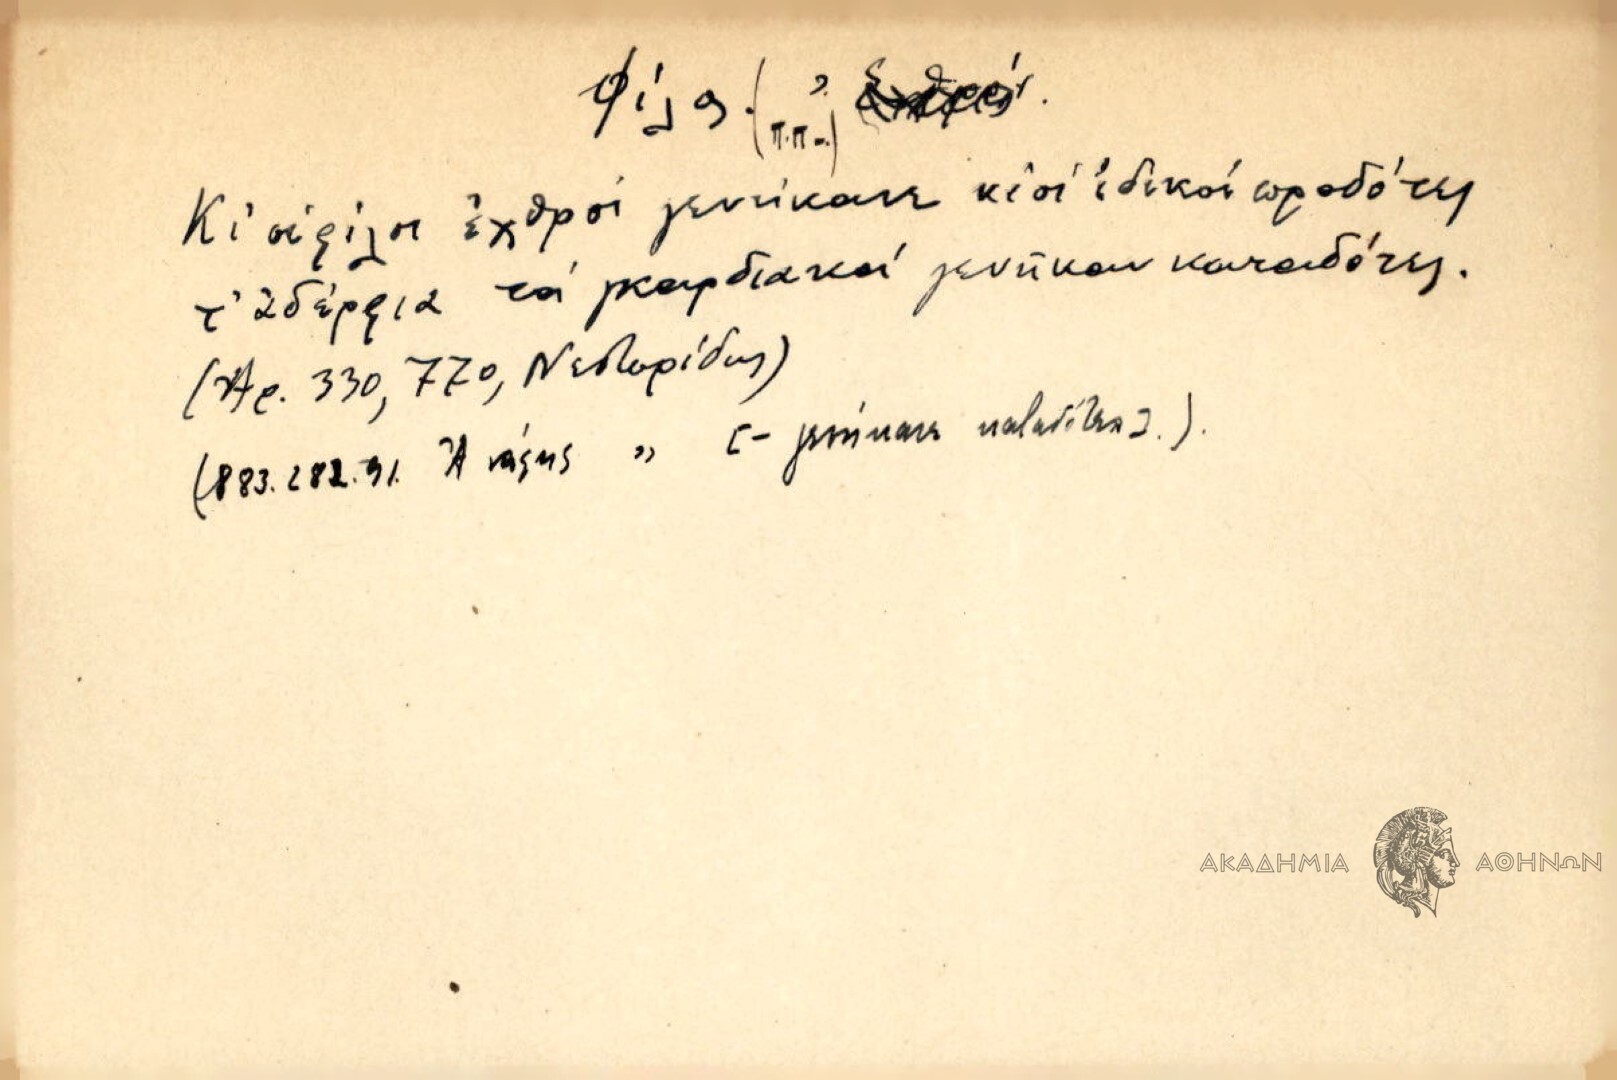 Φίλος. (π.π.)
Κι' οἱ φίλοι ἐχθροί γενήκανε κι' οἱ ἐδικοί προδότες
τ' ἀδέρφια τά γκαρδιακά γενῆκαν καταδότες.
(Ἀρ. 330, 770, Νεστορίδης)
(883. 282. 91. " [- γενήκανε καταδότες].).
ΑΚΑΔΗΜΙΑ ΑΘΗΝΩΝ